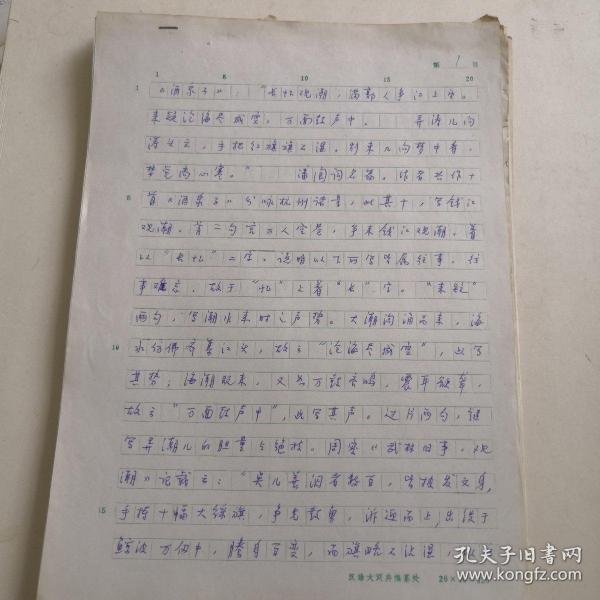 第 1 页
1 5 10 15 20
1 《酒泉子》:“长忆观潮,满郭人争江上望。
来疑沧海尽成空,万面鼓声中。 弄涛儿向
涛头立,手把红旗旗不湿。别来几向梦中看,
梦觉尚心寒。” 潘阆词名篇。作者共作十
5 首《酒泉子》分咏杭州诸景,此其十,写钱江
观潮。首二句言万人空巷,争来钱江观潮。着
以“长忆”二字,说明以下所写皆属往事。往
事难忘,故于“忆”上着“长”字。“来疑”
两句,写潮水来时之声势。大潮汹涌而来,海
10 水仿佛齐集江头,故云“沧海尽成空”,此写
其势;海潮既来,又如万鼓齐鸣,震耳欲聋,
故云“万面鼓声中”,此写其声。过片两句,续
写弄潮儿的胆量与绝技。周密《武林旧事·观
潮》记载云:“吴儿善泅者数百,皆披发文身,
15 手持十幅大彩旗,争先鼓勇,溯迎而上,出没于
鲸波万仞中,腾身百变,而旗略不沾湿,
汉语大词典编纂处
孔夫子旧书网
www.kongfz.com